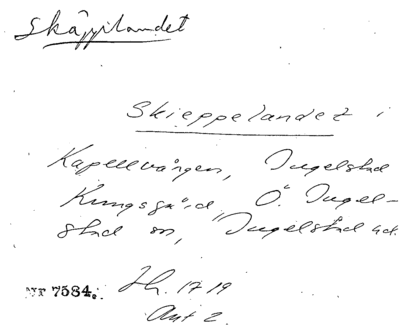 Skäppilandet
Skieppelandet i
Kapellvången, Ingelstad
Kungsgård, Ö. Ingel-
stad sn, Ingelstad hd.
Nr 7584. Jh. 1719
Akt 2.